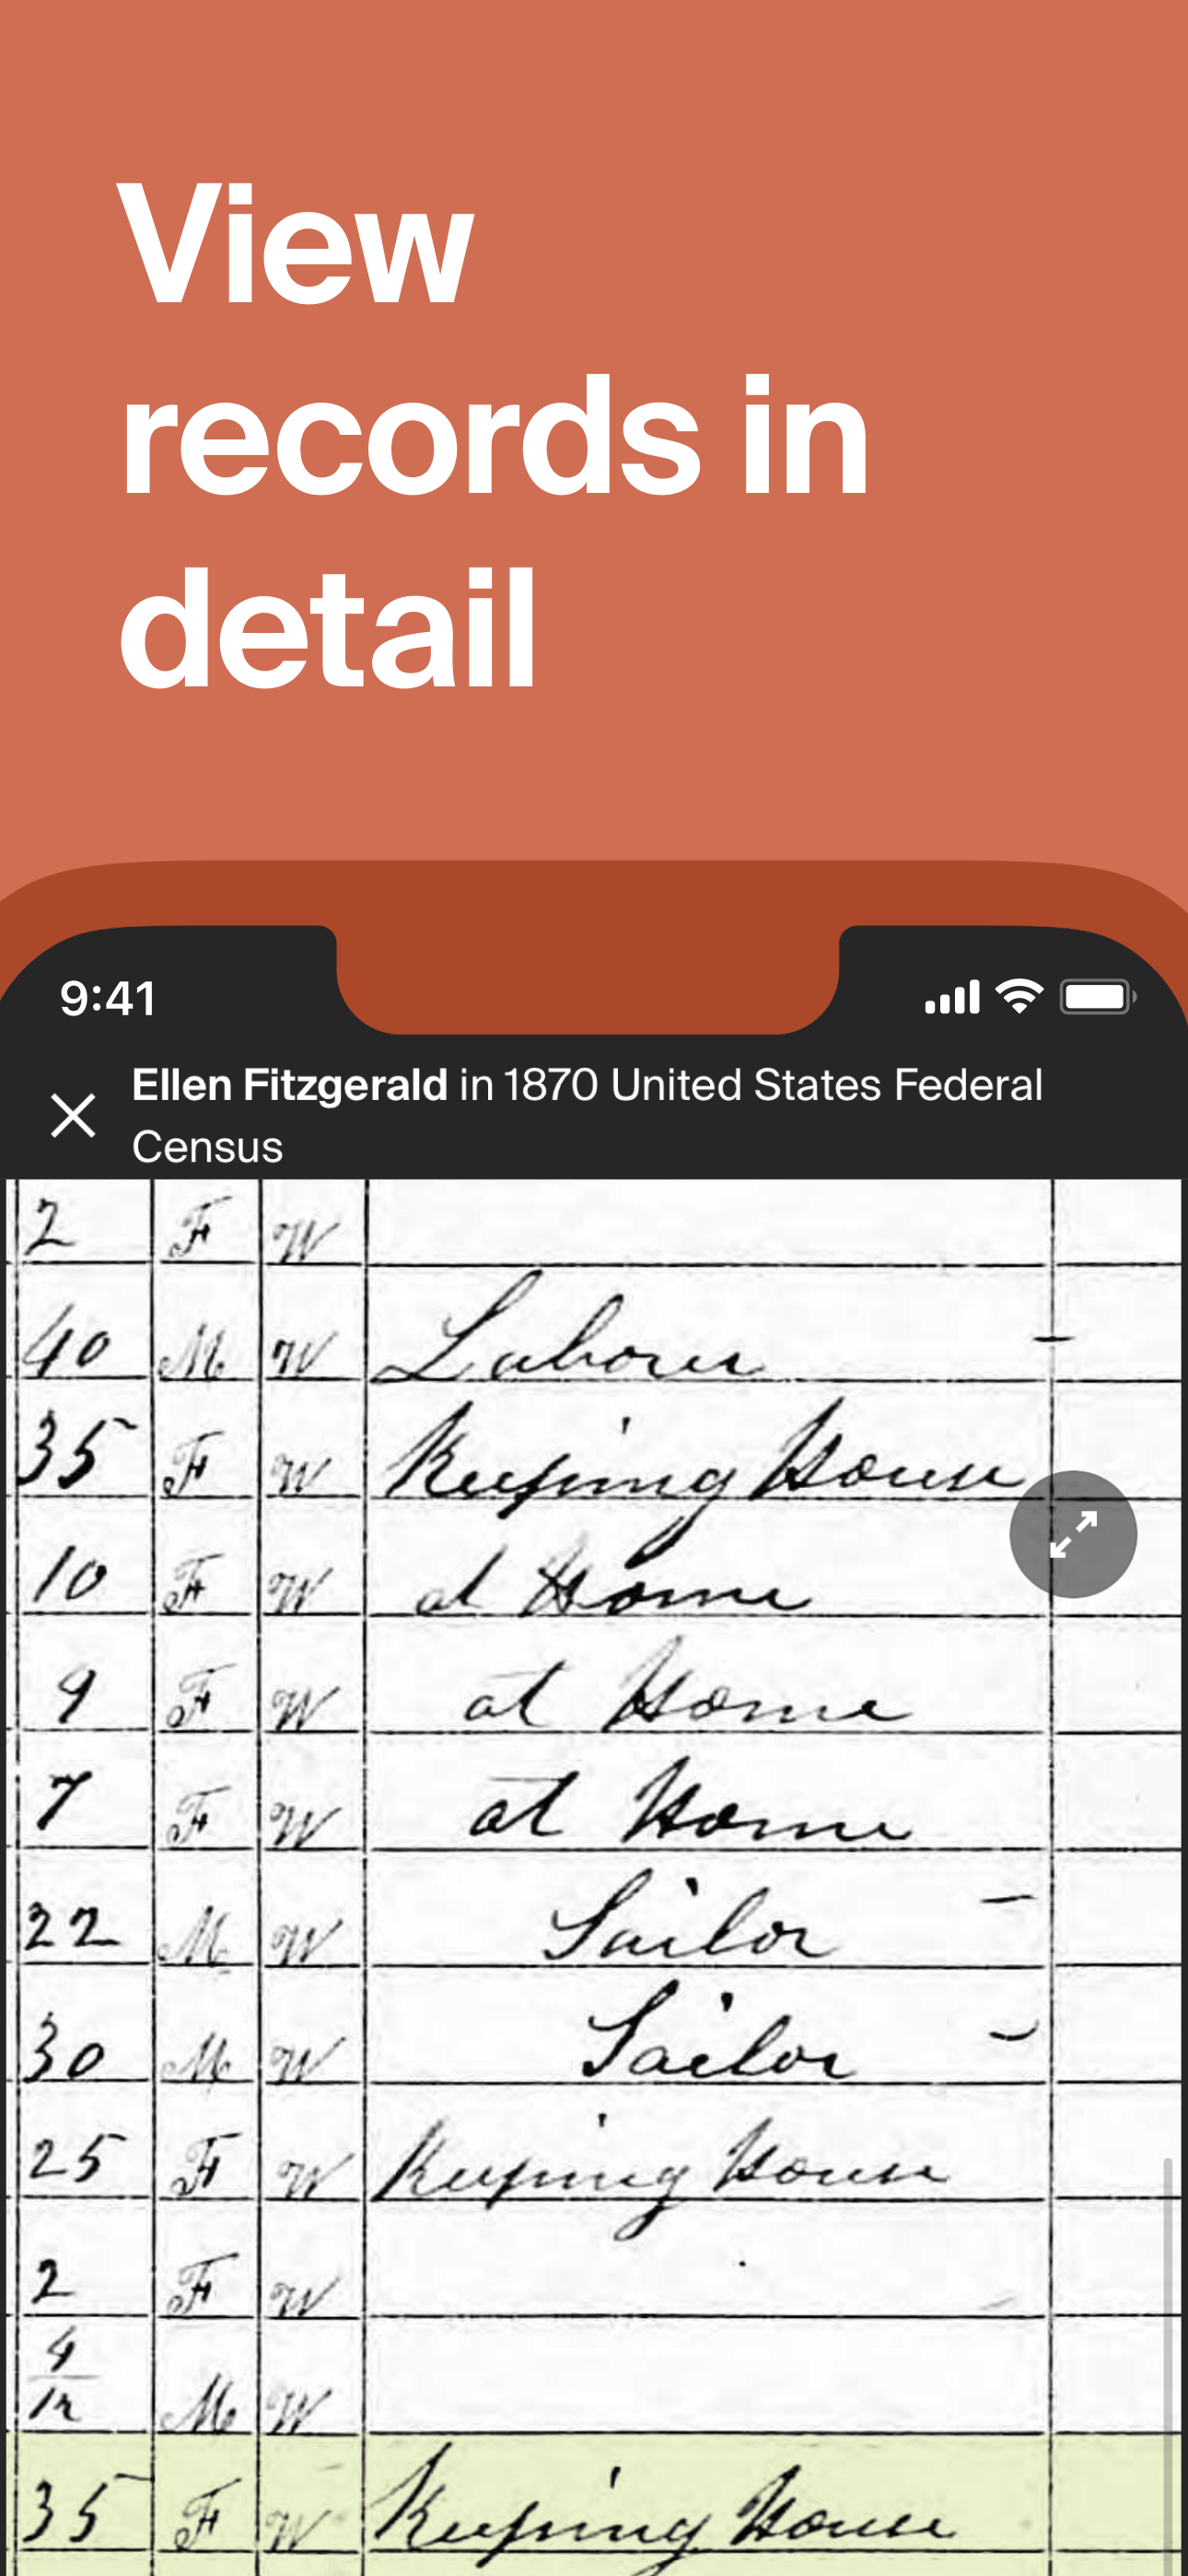 View
records in
detail
9:41
Ellen Fitzgerald in 1870 United States Federal
Census
2 F W
40 M W Laborer
35 F W Keeping House
10 F W at Home
9 F W at Home
7 F W at Home
22 M W Sailor
30 M W Sailor
25 F W Keeping House
2 F W
4/12 M W
35 F W Keeping House